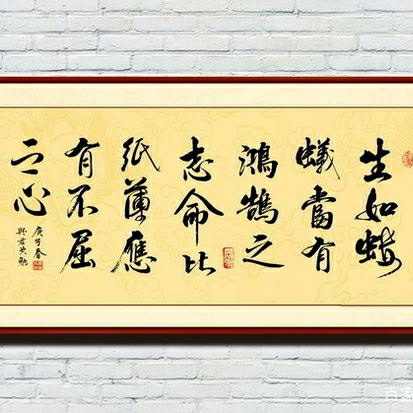 生如螻
蟻當有
鴻鵠之
志命比
紙薄應
有不屈
之心
庚子春
與君共勉